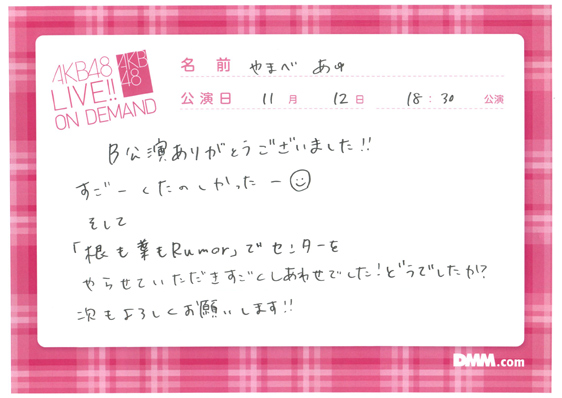 AKB48
LIVE!!
ON DEMAND
AKB
48
名前 やまべ あゆ
公演日 11月 12日 18:30 公演
B公演ありがとうございました!!
すごーくたのしかったー
そして
「根も葉もRumor」でセンターを
やらせていただきすごくしあわせでした!どうでしたか?
次もよろしくお願いします!!
DMM.com